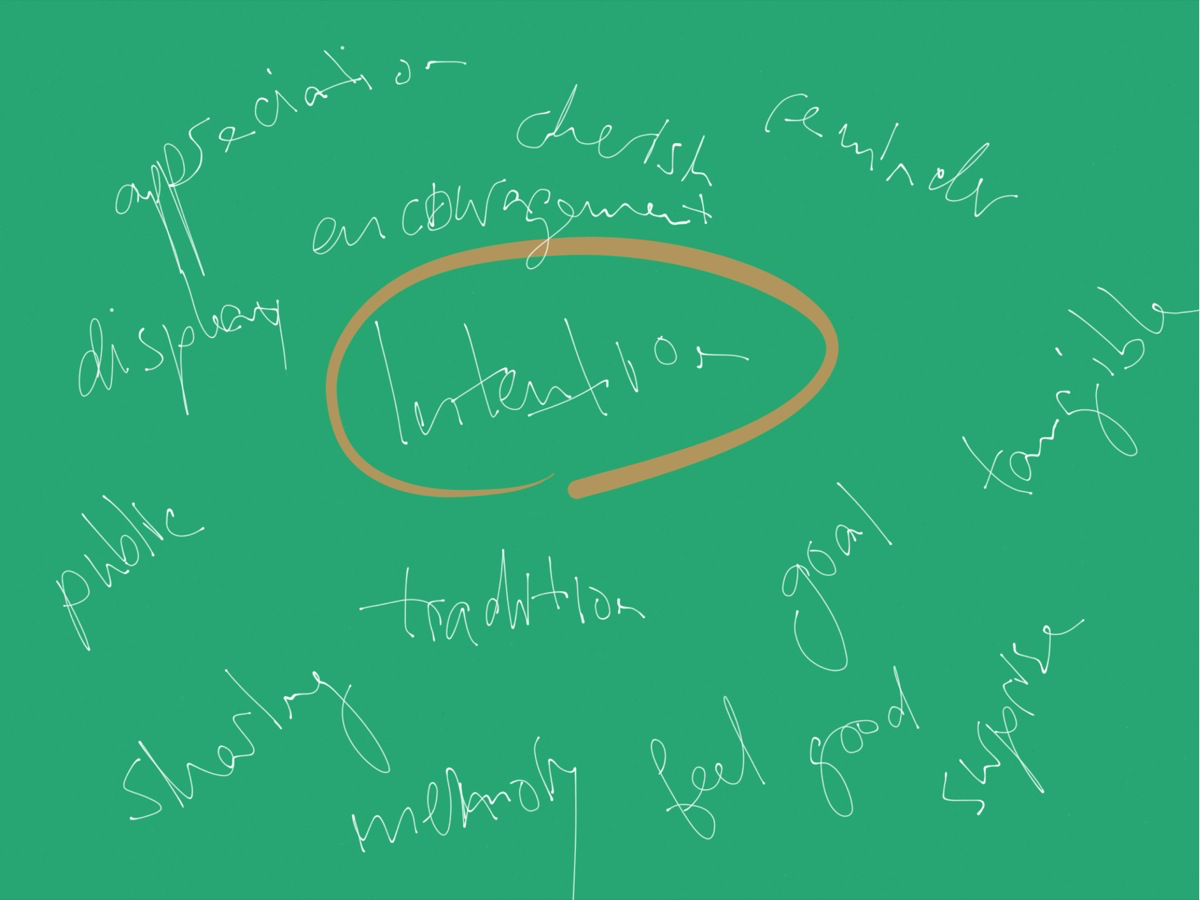 appreciation
cherish
reminder
encouragement
display
Intention
tangible
public
goal
tradition
surprise
sharing
feel good
memory